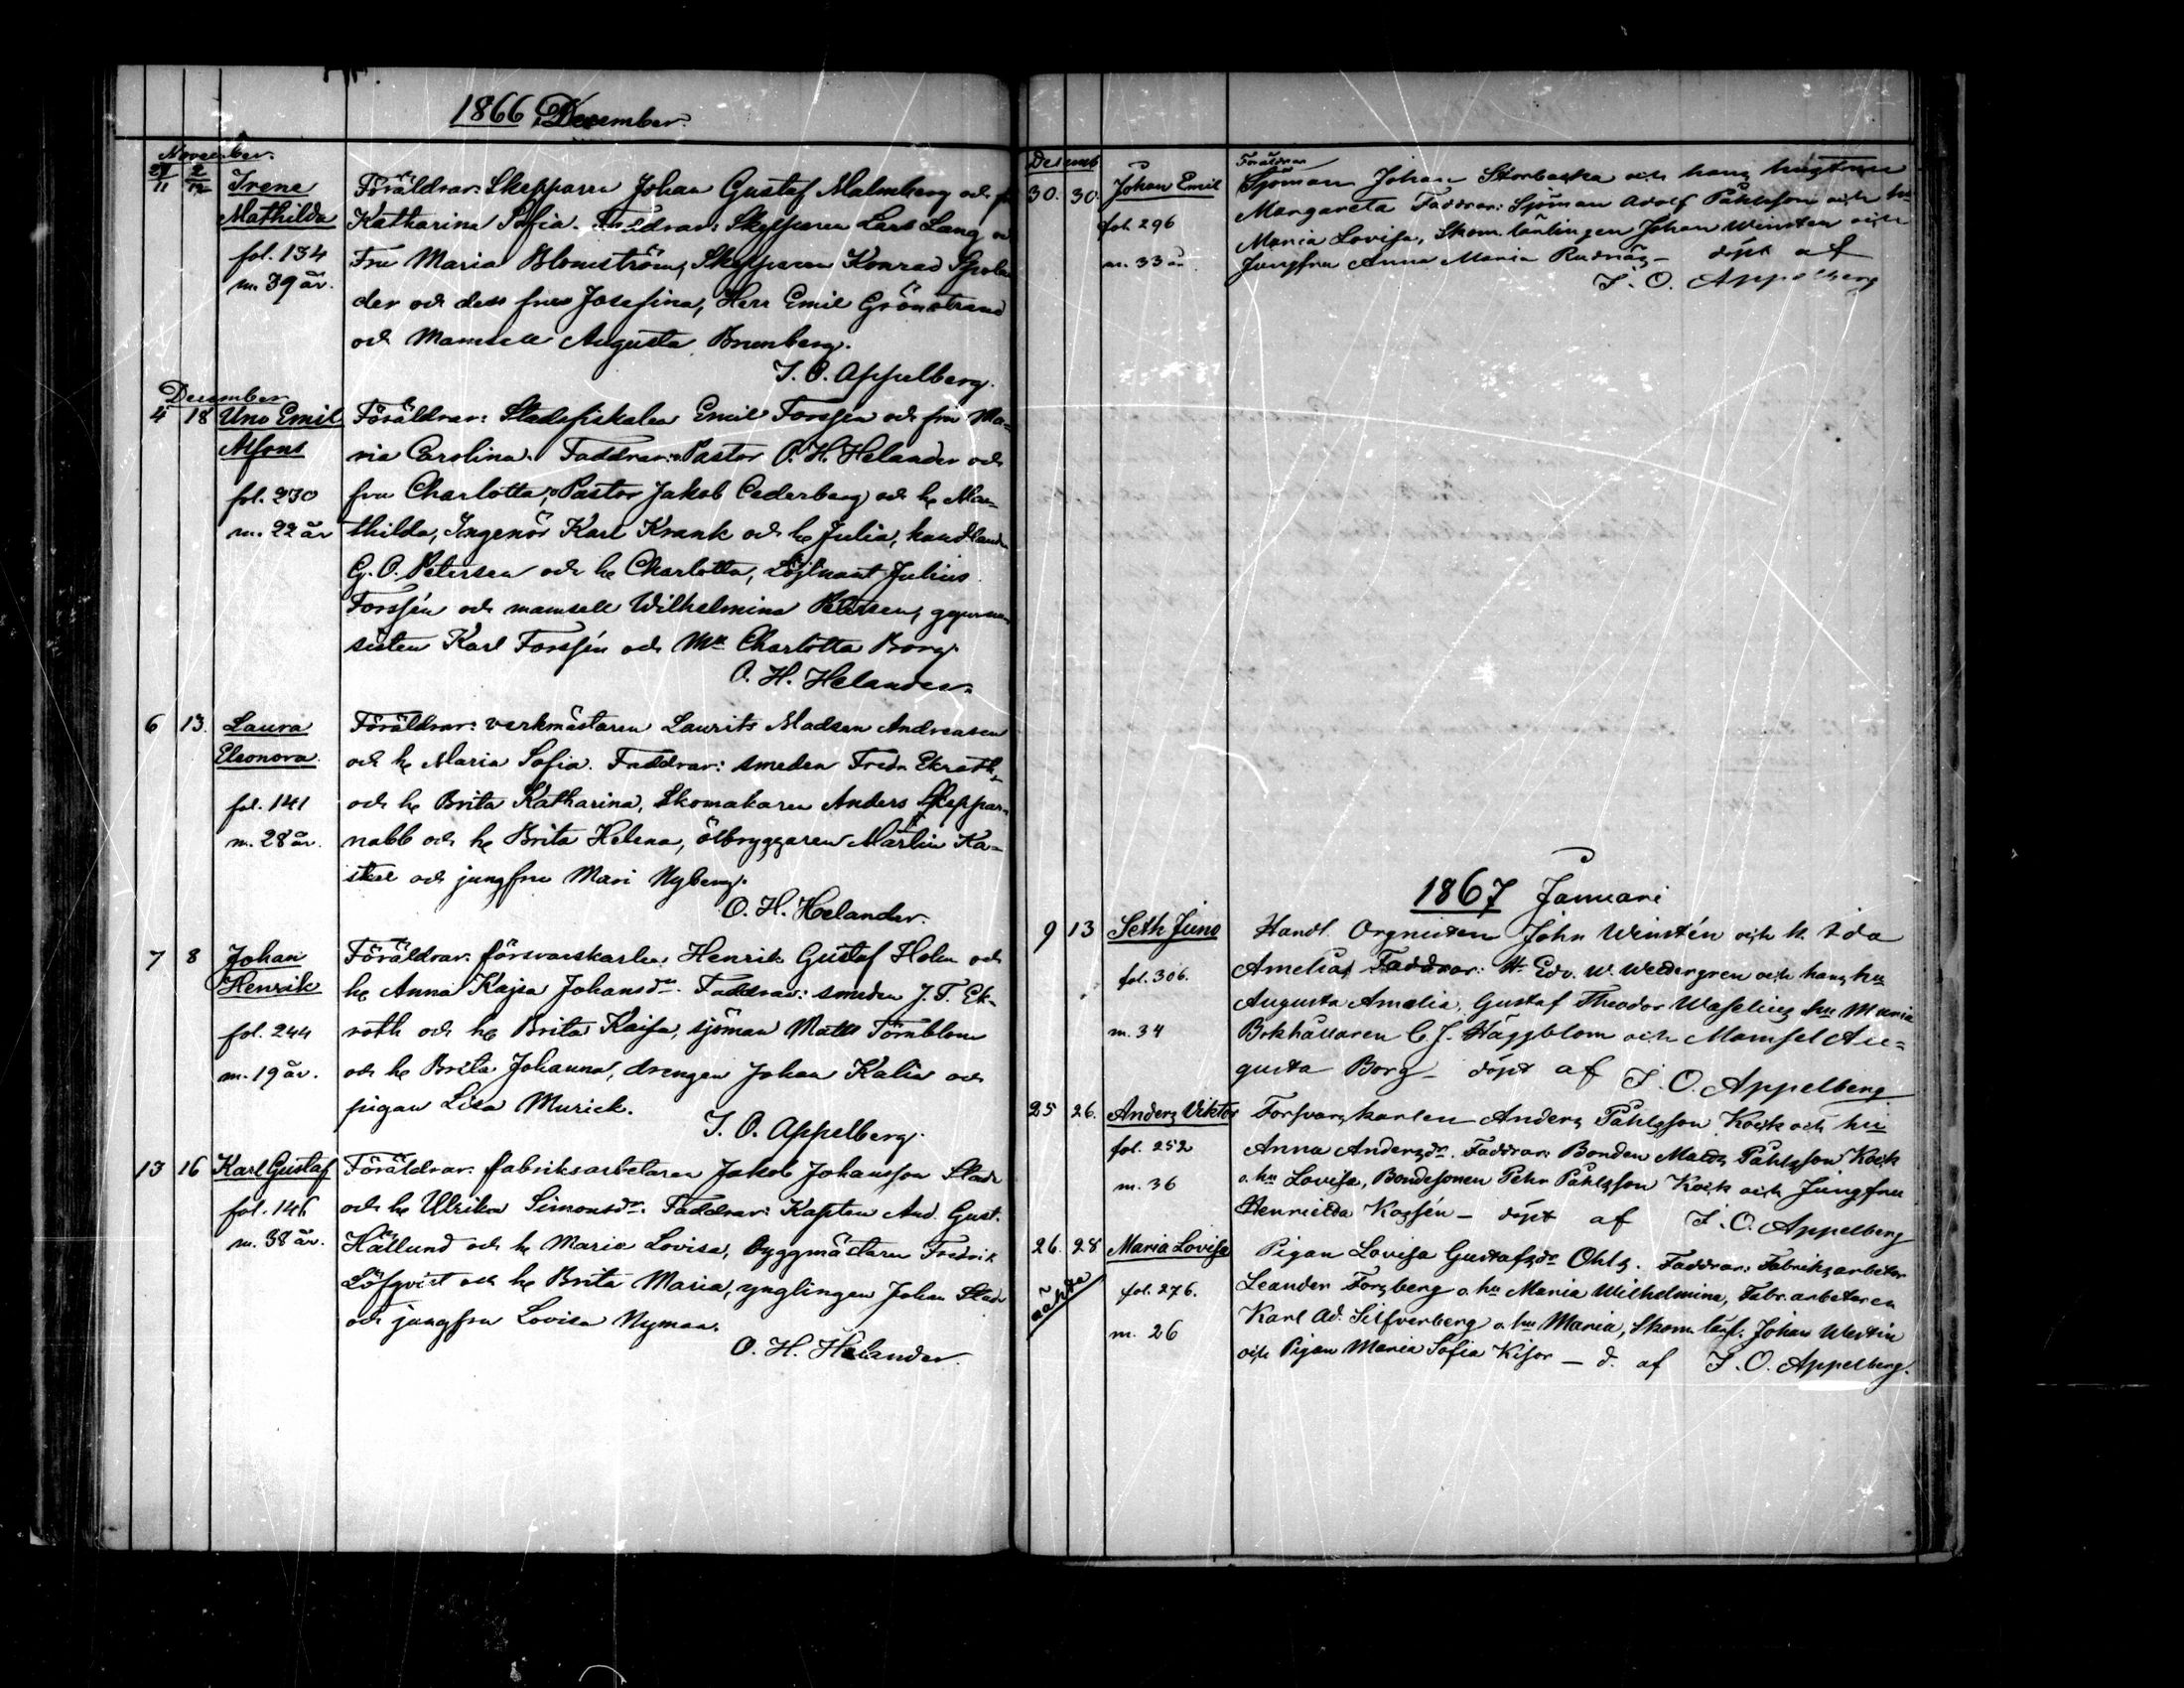 1866 December.
November.
27/11 2/12 Irene Föräldrar: Skepparen Johan Gustaf Malmberg och
Mathilda Katharina Sofia. Faddrar: Skepparen Lars Lang
fol. 134 Fru Maria Blomström, Skepparen Konrad
m. 39 år. der och dess fru Josefina, Herr Emil Grönstrand
och Mamsell Augusta Brunberg.
I. O. Appelberg.
December
4 18 Uno Emil Föräldrar: Stadsfiskalen Emil Forssén och fru Ma-
Alfons ria Carolina. Faddrar: Pastor O. H. Helander och
fol. 230 fru Charlotta, Pastor Jakob Cederberg och h. Ma-
m. 22 år thilda, Ingenör Karl Krank och h. Julia, handlanden
G. O. Petersen och h. Charlotta, Löjtnant Julius
Forssén och mamsell Wilhelmina Petersen, gymna-
sisten Karl Forssén och Mll Charlotta Borg.
O. H. Helander.
6 13. Laura Föräldrar: verkmästaren Laurits Madsen Andreasen
Eleonora. och h. Maria Sofia. Faddrar: smeden Fredr. Ekroth
fol. 141 och h. Brita Katharina, Skomakaren Anders Skeppar-
m. 28 år. nabb och h. Brita Helena, ölbryggaren Martin Ka-
och jungfru Mari Nyberg.
O. H. Helander.
7 8 Johan Föräldrar: försvarskarlen Henrik Gustaf Holm och
Henrik h. Anna Kajsa Johansdr. Faddrar: smeden J. F. Ek-
fol. 244 roth och h. Brita Kaisa, sjöman Matts Törnblom
m. 19 år. och h. Brita Johanna, drengen Johan Kalia och
pigan Lisa Murick.
I. O. Appelberg.
13 16 Karl Gustaf Föräldrar: fabriksarbetaren Jakob Johansson Stadr
fol. 146 och h. Ulrika Simonsdr. Faddrar: Kapten And. Gust.
m. 38 år. Hällund och h. Maria Lovisa, byggmästaren Fredrik
Löfqvist och h. Brita Maria, ynglingen Johan Stadr
och jungfru Lovisa Nyman.
O. H. Helander.
Decemb
Föräldrar
30. 30. Johan Emil Sjöman Johan Storbacka och hans hustru
fol. 296 Margareta Faddrar: Sjöman Adolf Påhlsson och hu
m. 33 år Maria Lovisa, Skom. lärlingen Johan Winsten och
Jungfru Anna Maria Rudnäs – döpt af
I. O. Appelberg
1867 Januari
9 13 Seth Juno Handl. Orgnisten John Winstén och h. Ida
fol. 306. Amelia, Faddrar: Hr Edv. W. Wedergren och hans hu
Augusta Amalia, Gustaf Theodor Waselius hu Maria
m. 34 Bokhållaren C. J. Häggblom och Mamsel Au-
gusta Borg – döpt af I. O. Appelberg.
25 26. Anders Viktor Forsvarskarlen Anders Påhlsson Kock och hu
fol. 252 Anna Andersdr. Faddrar: Bonden Matts Påhlsson Kock
m. 36 o. hu Lovisa, Bondesonen Pehr Påhlsson Kock och Jungfru
Henrietta Kossén – döpt af I. O. Appelberg
26. 28 Maria Lovisa Pigan Lovisa Gustafsdr Ohls. Faddrar: Fabriksarbetar
oäkta fol. 276. Leander Forsberg o. hu Maria Wilhelmina, Fabr. arbetaren
m. 26 Karl Ad. Silfverberg o. hu Maria, Skom. lärl. Johan Westin
och Pigan Maria Sofia Kisor – d. af I. O. Appelberg.